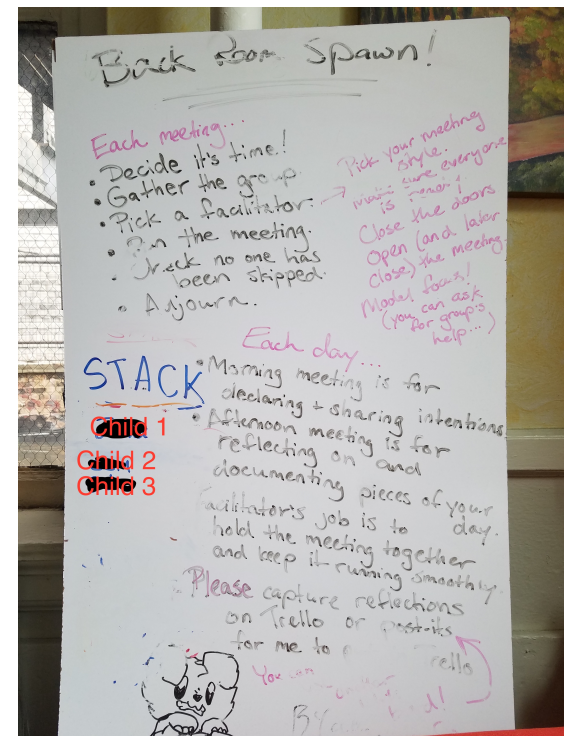 Back Room Spawn!
Each meeting....
• Decide it's time!
• Gather the group.
• Pick a facilitator
• Run the meeting.
• Check no one has
been skipped.
• Adjourn.
Pick your meeting
style.
sure everyone
is
Close the doors
Open (and later
close) the meeting.
Model focus!
(you can ask
for group's
help...)
Each day...
• Morning meeting is for
declaring + sharing intentions
• Afternoon meeting is for
reflecting on and
documenting pieces of your
day.
Facilitator's job is to
hold the meeting together
and keep it running smoothly.
Please capture reflections
on Trello or post-its
for me to
Trello
You can
STACK
Child 1
Child 2
Child 3